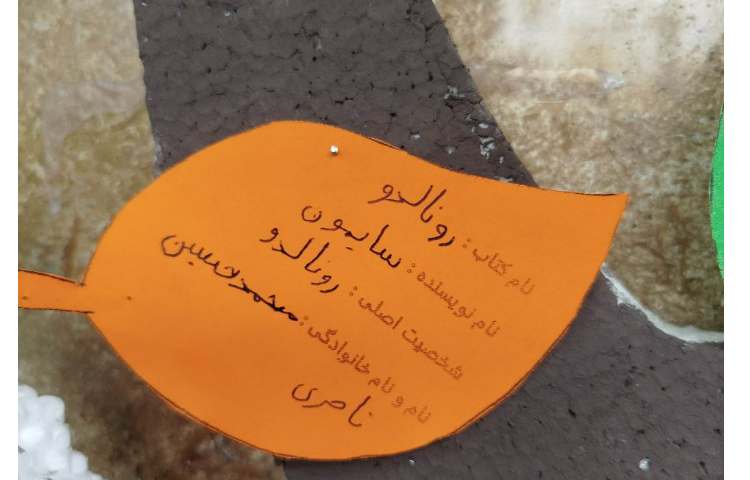 نام کتاب: رونالدو
نام نویسنده: سایمون
شخصیت اصلی: رونالدو
نام و نام خانوادگی: محمدحسین
ناصری